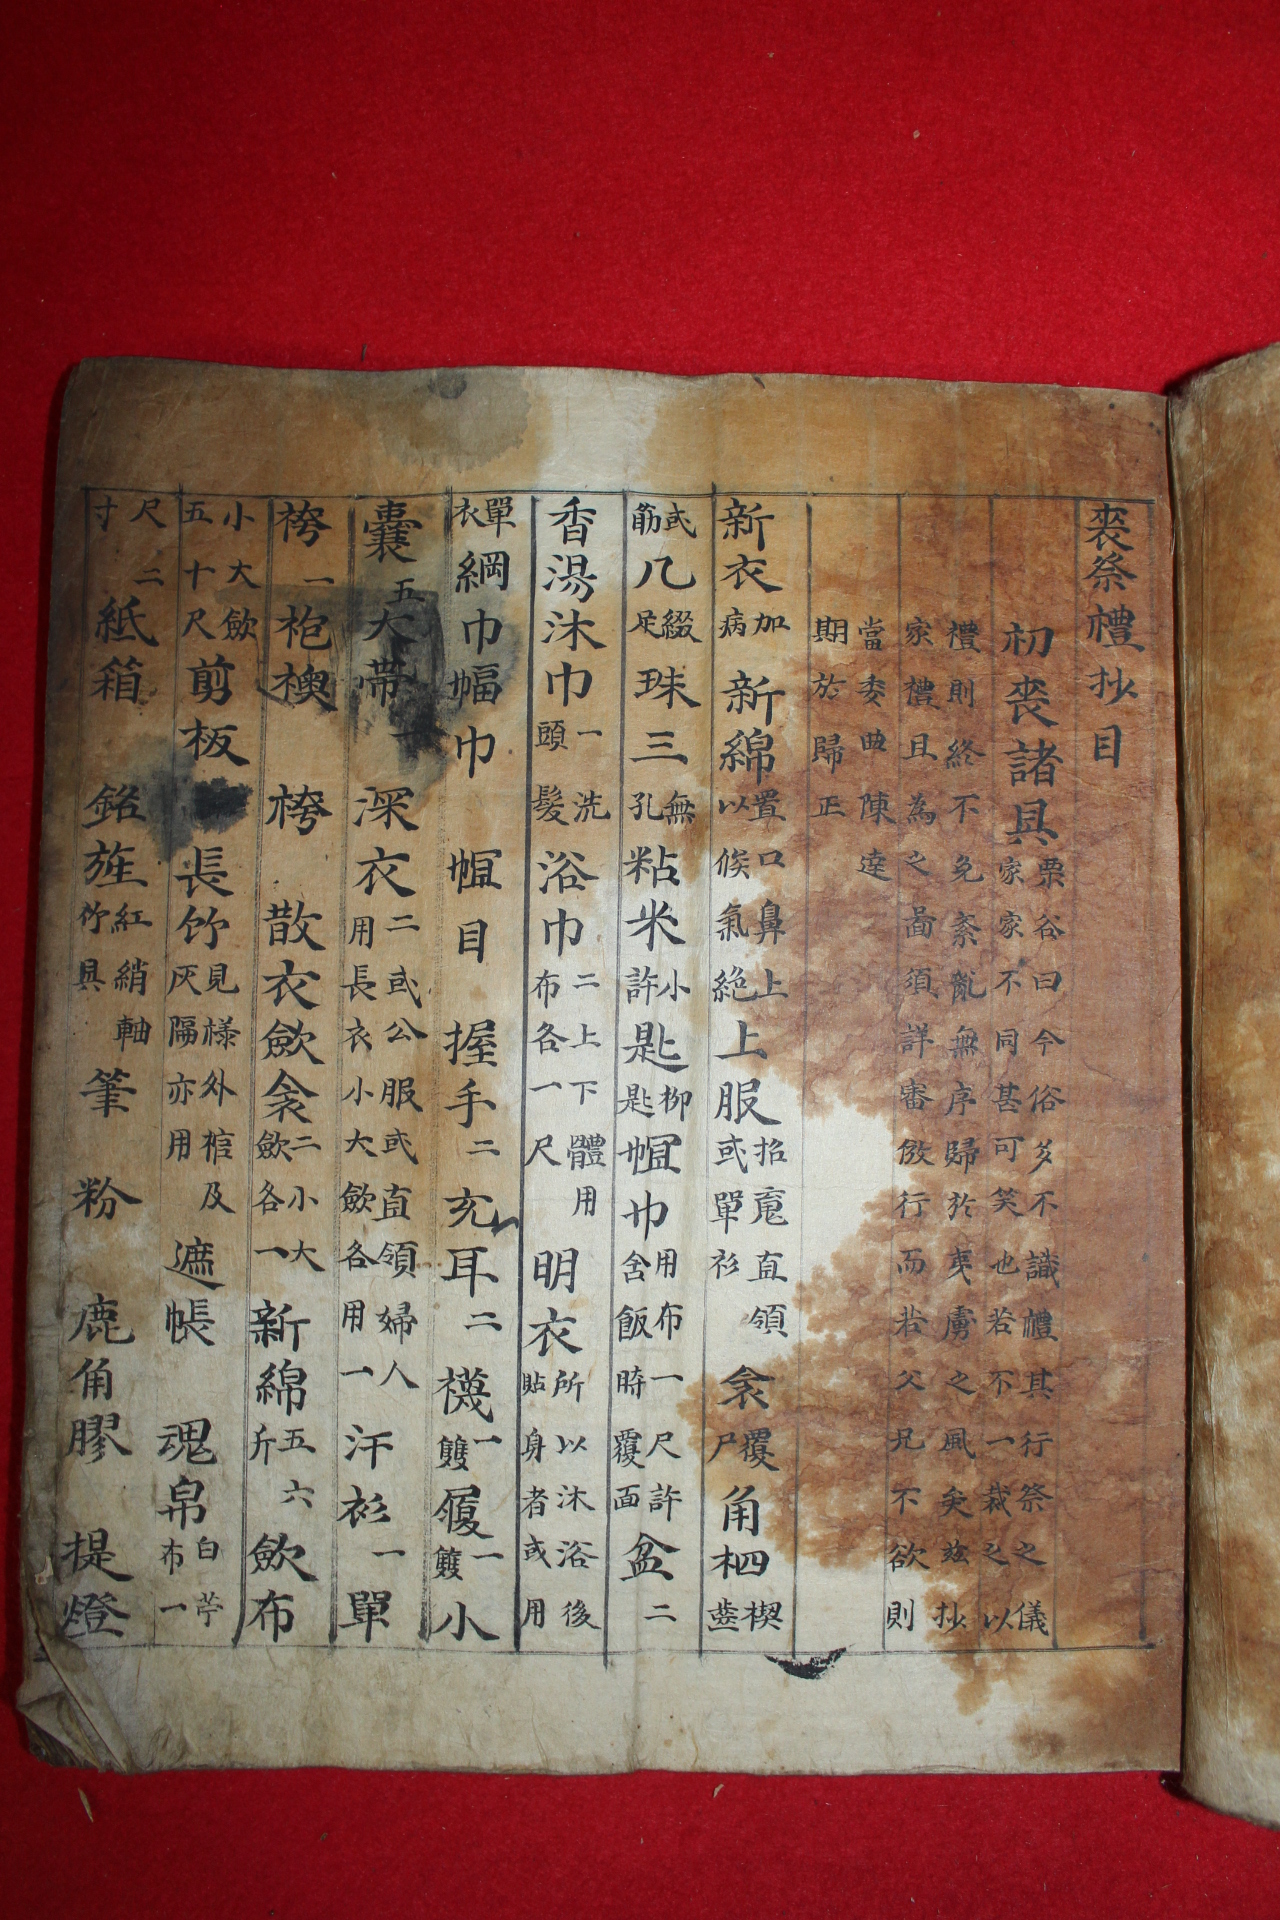 喪祭禮抄目
初喪諸具 栗谷曰今俗多不識禮其行祭之儀
家家不同甚可笑也若不一裁之以
禮則終不免紊亂無序歸於夷虜之風矣玆抄
家禮且為之啚須詳審倣行而若父兄不欲則
當委曲陳達
期於歸正
新衣 加病 新綿 置口鼻上以候氣絶 上服 招䰟直領或單衫 衾 覆尸 角柶 楔齒
或筯 几 綴足 珠三 無孔 粘米 小許 匙 柳匙 幎巾 用布一尺許含飯時覆面 盆二
香湯沐巾 一洗頭髮 浴巾 二上下體用布各一尺 明衣 所以沐浴後貼身者或用
單衣 網巾 幅巾 幎目 握手二 充耳二 襪 一雙 履 一雙 小
囊五 大帶一 深衣 二或公服或直領婦人用長衣小大斂各用一 汗衫一 單
袴一 袍襖 袴 散衣 斂衾 二小大斂各一 新綿 五六斤 斂布
小大斂五十尺 剪板 長竹 見樣外棺及灰隔亦用 遮帳 魂帛 白苧布一
尺二寸 紙箱 銘旌 紅綃軸竹具 筆 粉 鹿角膠 提燈